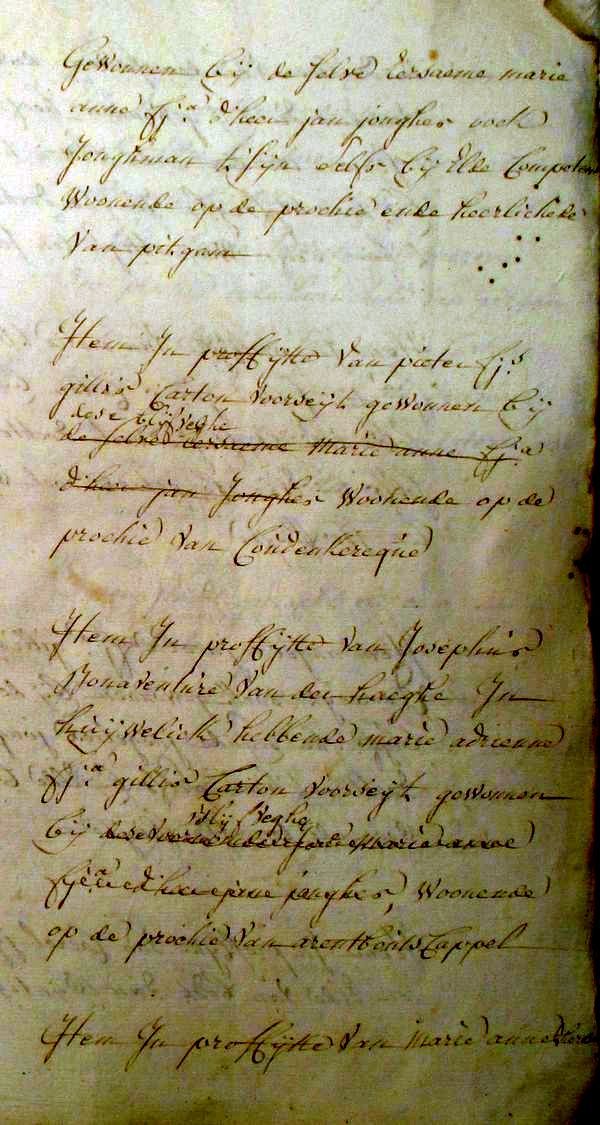 Gewonnen bij de selve Eersaeme marie
anne fij.ª d'heer jan jonghes oock
Jonghman t' sijn selfs bij Elde Competen
Woonende op de prochie ende heerlichede
Van pitgam
Item In proffijtte Van pieter fij.s
gillis Carton Voorseijt gewonnen bij
dese bijsleghe
de selve eersaeme Marie anne fij.ª
d'heer jan Jonghes Woonende op de
prochie Van Coudenkercque
Item In proffijtte Van Josephus
Bonaventure Van der haeghe In
huijwelick hebbende marie adrienne
fij.ª gillis Carton Voorseijt gewonnen
bijsleghe
bij dese Marie anne
d'heer jonghes, Woonende
op de prochie Van arentboutsCappel
Item In proffijtte Van Marie anne